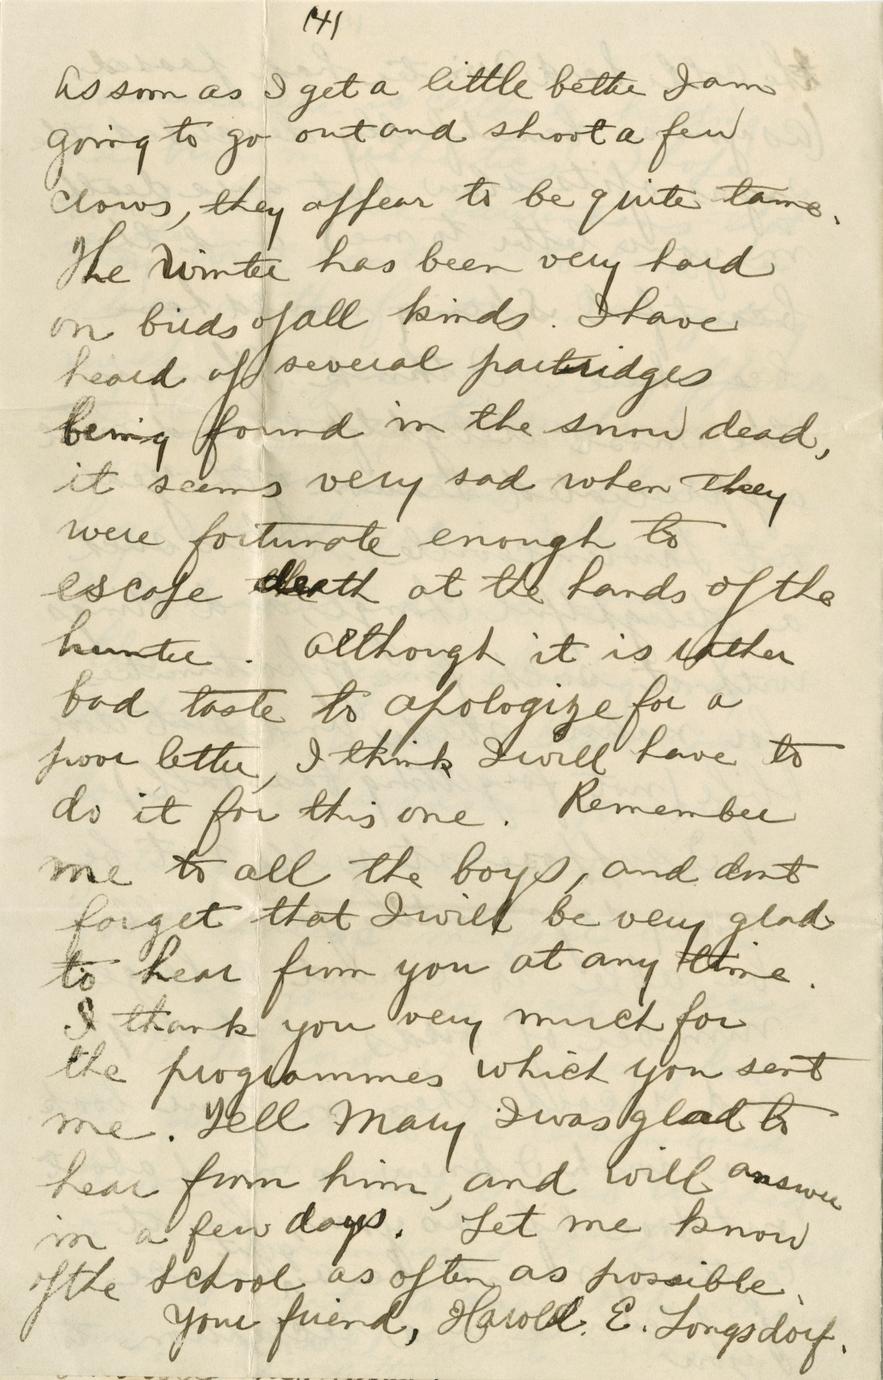 (4)
As soon as I get a little better I am
going to go out and shoot a few
crows, they appear to be quite tame.
The Winter has been very hard
on birds of all kinds. I have
heard of several partridges
being found in the snow dead,
it seems very sad when they
were fortunate enough to
escape death at the hands of the
hunter. Although it is rather
bad taste to apologize for a
poor letter, I think I will have to
do it for this one. Remember
me to all the boys, and dont
forget that I will be very glad
to hear from you at any time.
I thank you very much for
the programmes which you sent
me. Tell Mary I was glad to
hear from him, and will answer
in a few days. Let me know
of the School as often as possible.
Your friend, Harold. E. Longsdorf.